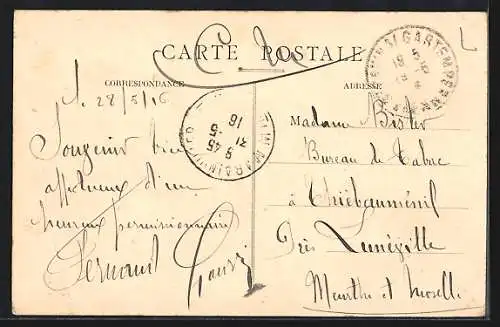 CARTE POSTALE
CORRESPONDANCE
ADRESSE
28/5/16
Souvenir bien
affectueux d'un
heureux permissionnaire
Fernand
Madame Bister
Bureau de Tabac
à Thiébauménil
Près Lunéville
Meurthe et Moselle